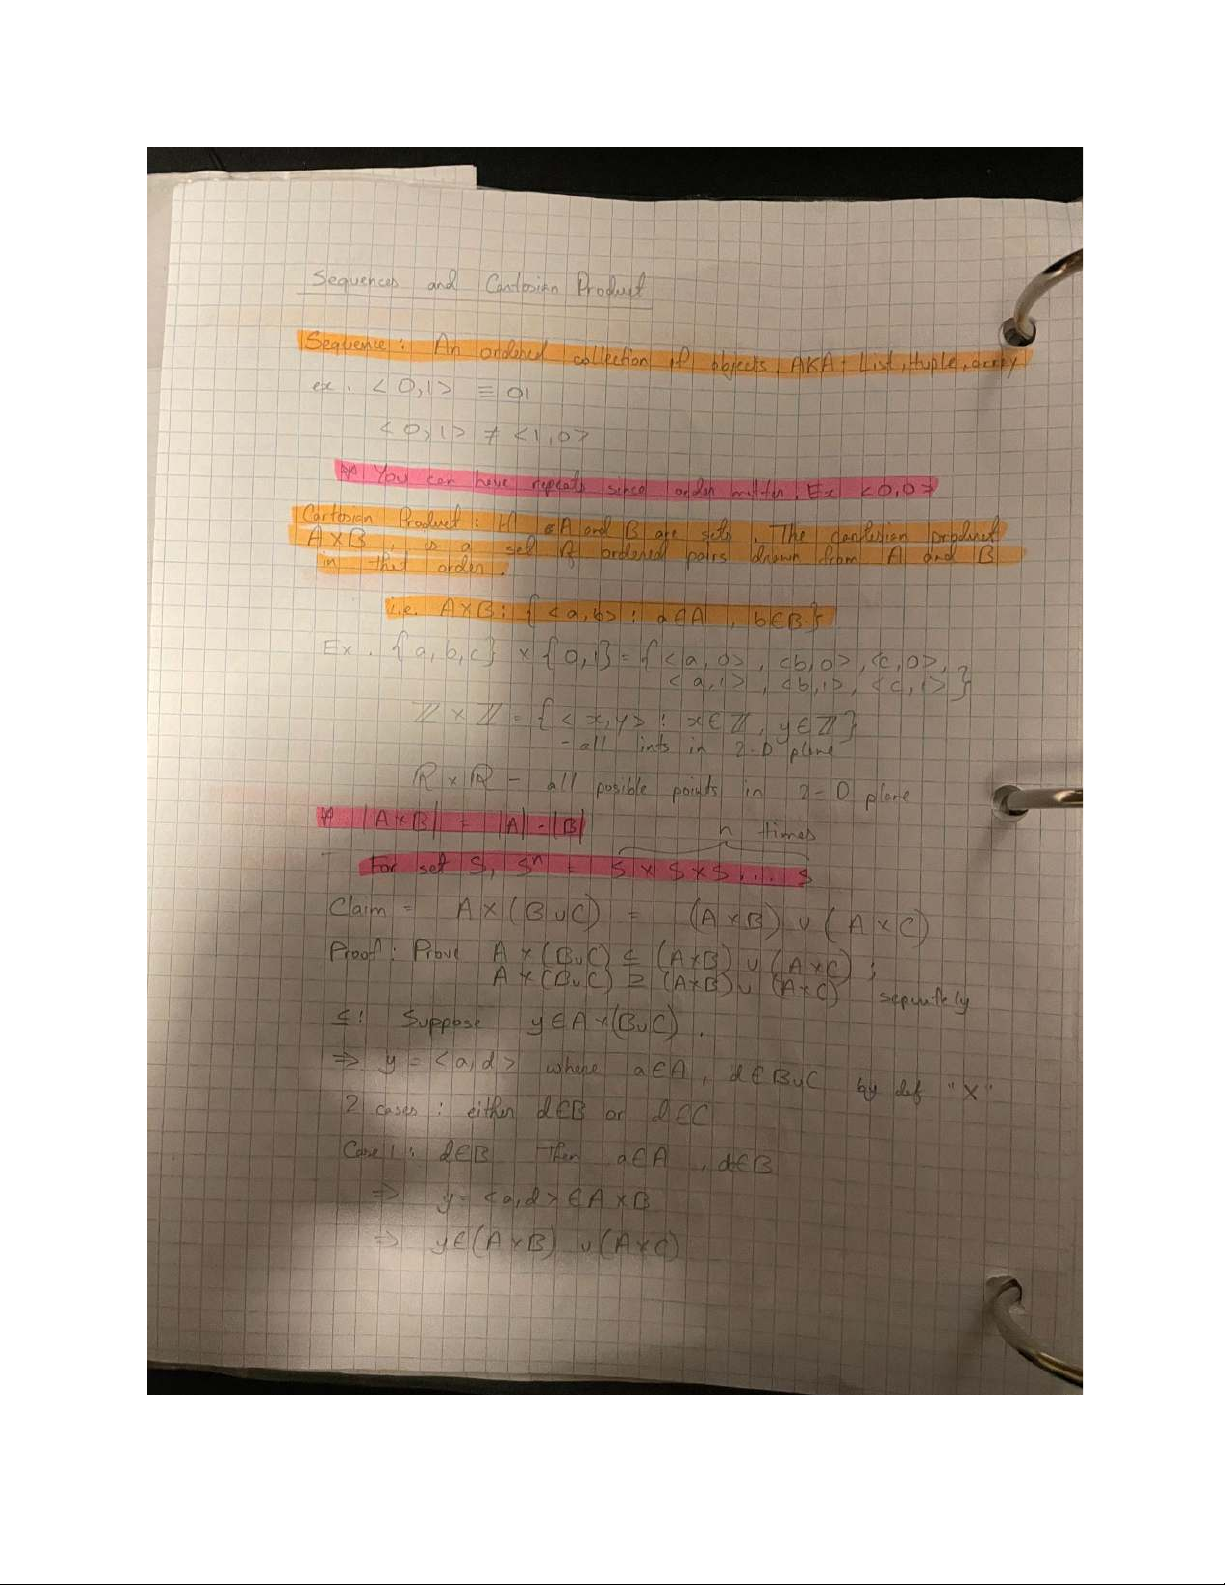 Sequences and Cartosian Product
Sequence : An ordered collection of objects, AKA : List, tuple, array
ex . < 0,1> ≡ 01
< 0,1> ≠ <1,0>
You can have repeats since order matter. Ex <0,0>
Cartosian Product : If A and B are sets . The cartesian product
A×B , is a set of ordered pairs drawn from A and B
in that order .
i.e. A×B : { <a,b> : a∈A , b∈B }
Ex . {a,b,c} × {0,1} = { <a,0> , <b,0> , <c,0>,
<a,1> , <b,1>, <c,1> }
ℤ × ℤ = { < x,y> : x∈ℤ, y∈ℤ }
- all ints in 2-D plane
ℝ × ℝ - all posible points in 2-D plane
|A×B| = |A|·|B|
n times
For set S, Sⁿ = S × S × S . . . . S
Claim = A × (B ∪ C) = (A × B) ∪ (A × C)
Proof : Prove A × (B∪C) ⊆ (A×B) ∪ (A×C) ;
A × (B∪C) ⊇ (A×B) ∪ (A×C) separately
⊆ : Suppose y ∈ A × (B∪C) .
⇒ y = <a,d> where a∈A , d∈B∪C by def "×"
2 cases : either d∈B or d∈C
Case 1 : d∈B Then a∈A , d∈B
⇒ y = <a,d> ∈ A × B
⇒ y∈(A×B) ∪ (A×C)